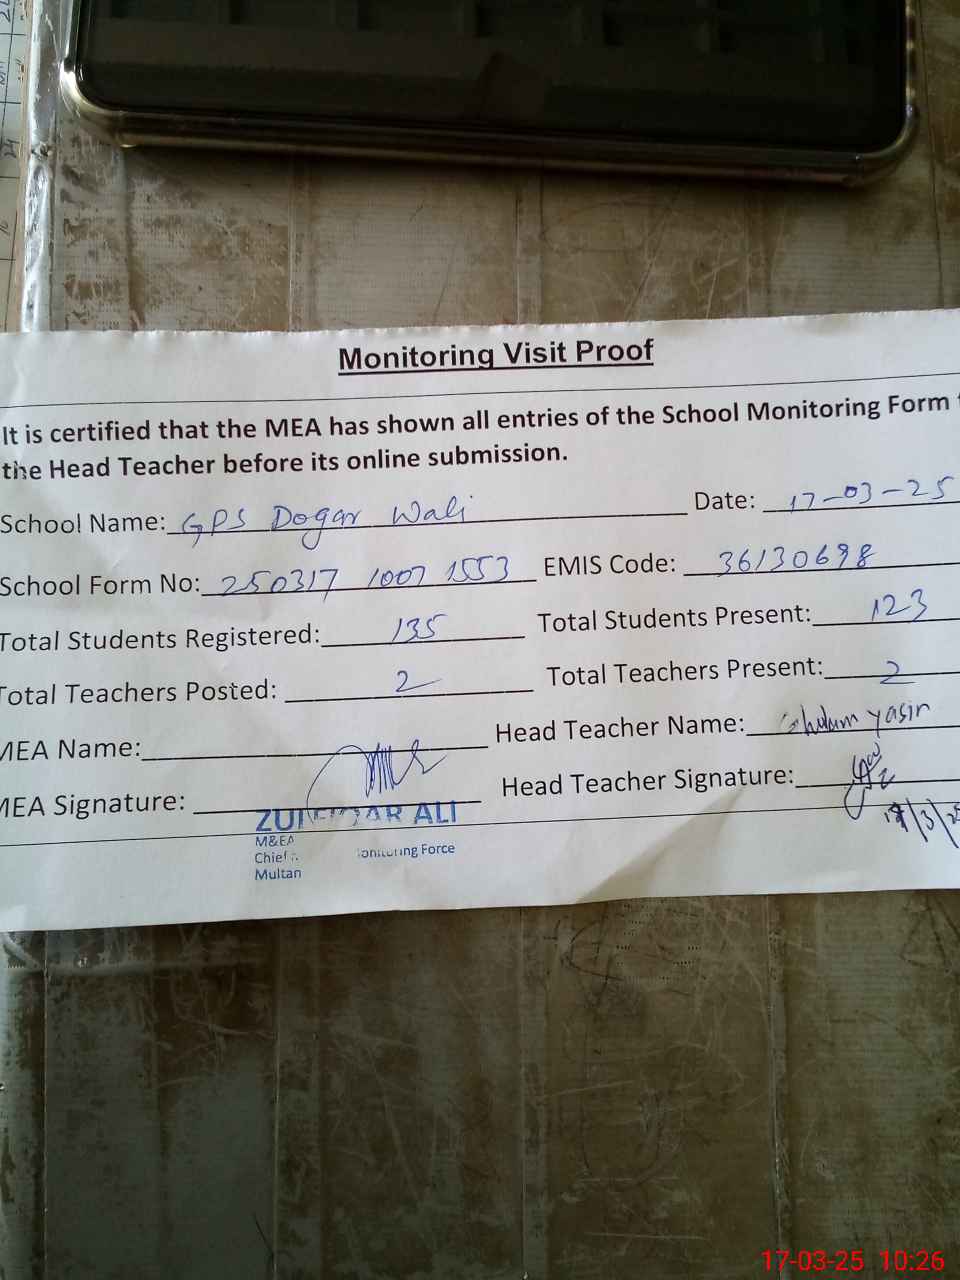 Monitoring Visit Proof
It is certified that the MEA has shown all entries of the School Monitoring Form
the Head Teacher before its online submission.
School Name: GPS Dogar Wali Date: 17-03-25
School Form No: 250317 1007 1553 EMIS Code: 36130698
Total Students Registered: 135 Total Students Present: 123
Total Teachers Posted: 2 Total Teachers Present: 2
MEA Name: Head Teacher Name: Ghulam Yasin
MEA Signature: Head Teacher Signature:
ALI
M&EA
Chief Monitoring Force
Multan
17/3/25
17-03-25 10:26